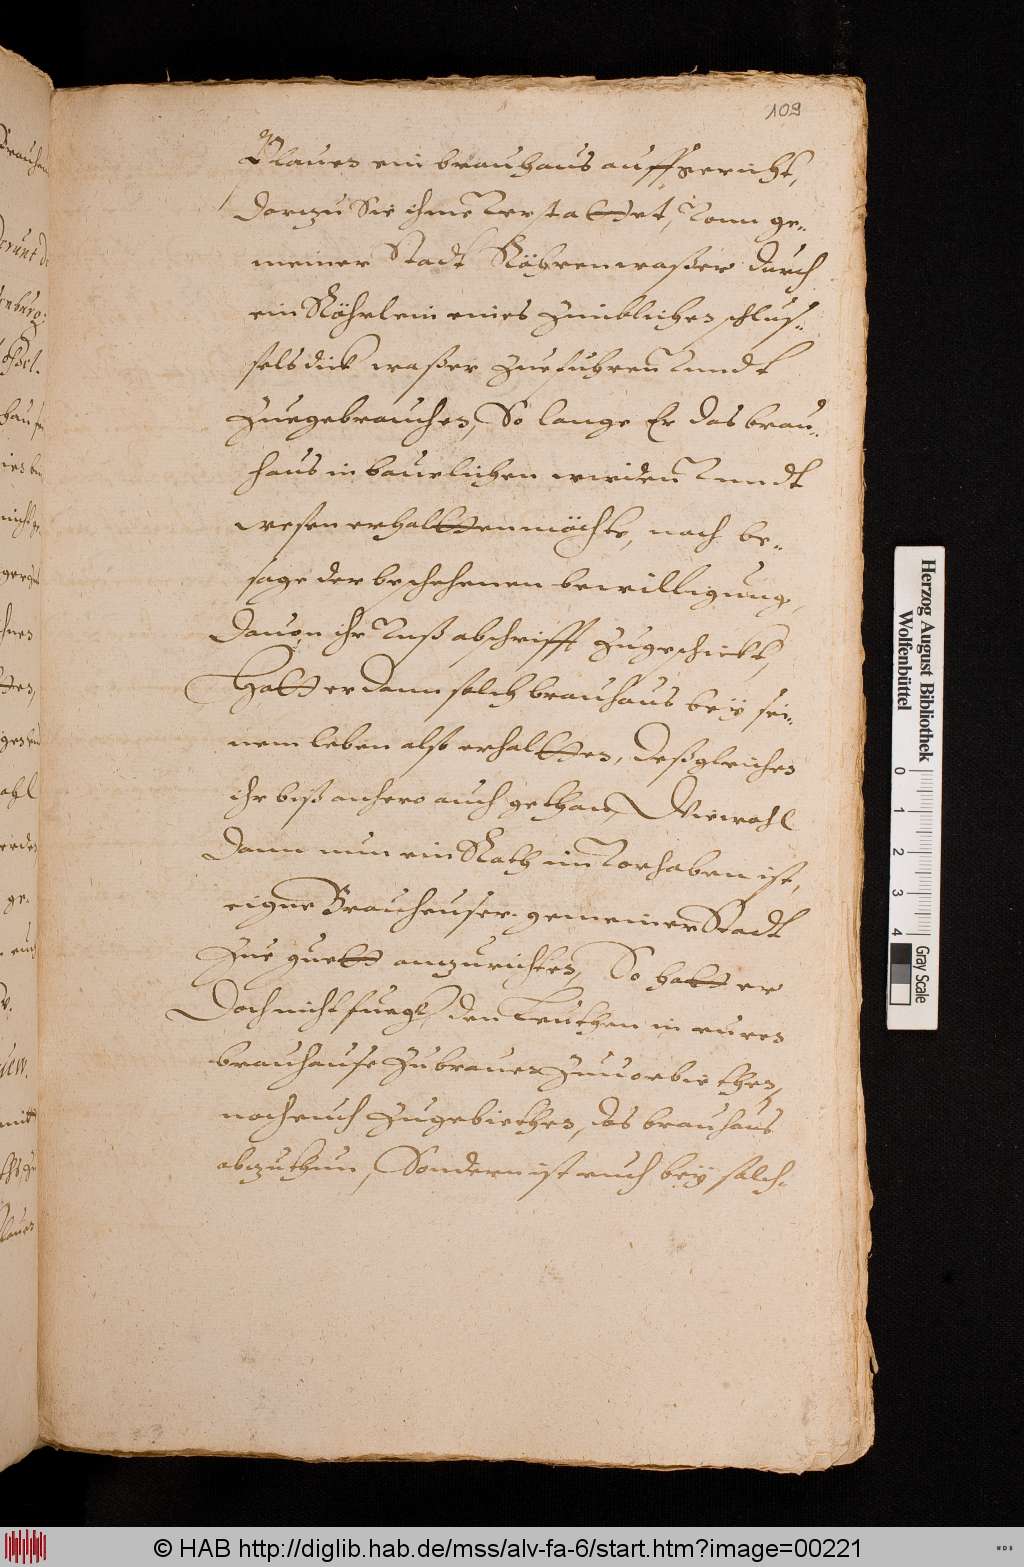 109
Plauen ein brauhaus auffgericht,
darzu Sie ihme verstattet, vonn ge-
meiner Stadt Röhrenwaßer durch
ein Röhrlein eines zimblichen schlus-
sels dick waßer zuefuhren vnndt
zuegebrauchen, So lange Er das brau-
haus in baurlichen wirden vnndt
wesen erhaltten möchte, nach be-
sage der beschehenen bewilligung,
dauon ihr vnß abschrifft zugeschickt,
Hatt er dann solch brauhaus bey sei-
nem leben also erhaltten, deßgleichen
ihr biß anhero auch gethan, Wiewohl
dann nun ein Rath im vorhaben ist,
eigne Brauheuser gemeiner Stadt
zue guett anzurichten, So hatt er
doch nicht fueg, den Leuthen in eurem
brauhause zu brauen zuuorbiethen,
noch euch zugebiethen, das brauhaus
abzuthun, Sondern ist euch bey solch-
Herzog August Bibliothek
Wolfenbüttel
0 1 2 3 4
Gray Scale
© HAB http://diglib.hab.de/mss/alv-fa-6/start.htm?image=00221